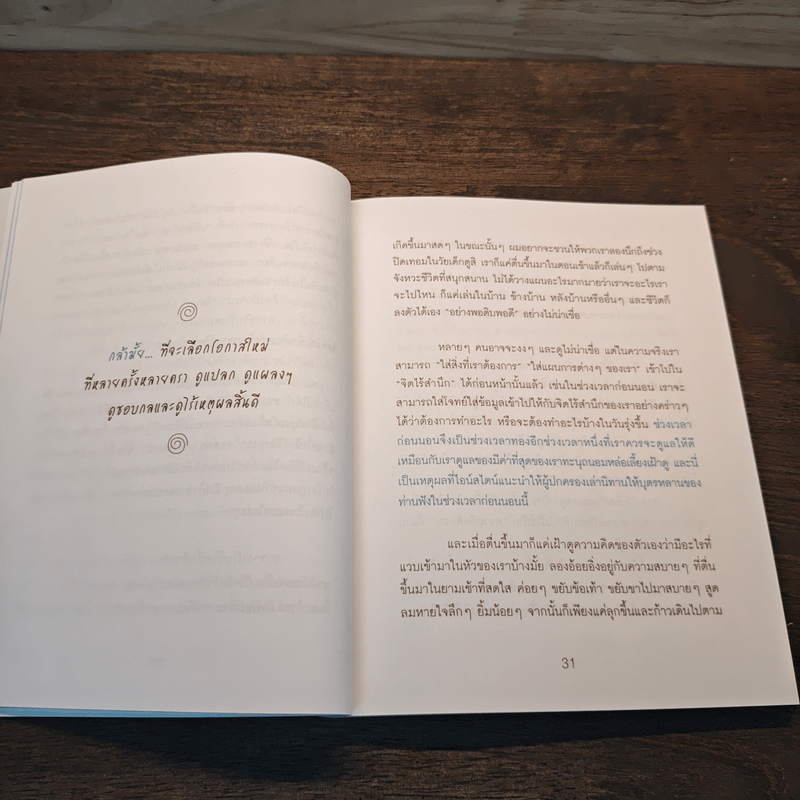 กล้ามั้ย... ที่จะเลือกโอกาสใหม่
ที่หลายครั้งหลายครา ดูแปลก ดูแผลงๆ
ดูชอบกลและดูไร้เหตุผลสิ้นดี
เกิดขึ้นมาสดๆ ในขณะนั้นๆ ผมอยากจะชวนให้พวกเราลองนึกถึงช่วง
ปิดเทอมในวัยเด็กดูสิ เราก็แค่ตื่นขึ้นมาในตอนเช้าแล้วก็เล่นๆ ไปตาม
จังหวะชีวิตที่สนุกสนาน ไม่ได้วางแผนอะไรมากมายว่าเราจะอะไรเรา
จะไปไหน ก็แค่เล่นในบ้าน ข้างบ้าน หลังบ้านหรืออื่นๆ และชีวิตก็
ลงตัวได้เอง "อย่างพอดิบพอดี" อย่างไม่น่าเชื่อ
หลายๆ คนอาจจะงงๆ และดูไม่น่าเชื่อ แต่ในความจริงเรา
สามารถ "ใส่สิ่งที่เราต้องการ" "ใส่แผนการต่างๆ ของเรา" เข้าไปใน
"จิตไร้สำนึก" ได้ก่อนหน้านั้นแล้ว เช่นในช่วงเวลาก่อนนอน เราจะ
สามารถใส่โจทย์ใส่ข้อมูลเข้าไปให้กับจิตไร้สำนึกของเราอย่างคร่าวๆ
ได้ว่าต้องการทำอะไร หรือจะต้องทำอะไรบ้างในวันรุ่งขึ้น ช่วงเวลา
ก่อนนอนจึงเป็นช่วงเวลาทองอีกช่วงเวลาหนึ่งที่เราควรจะดูแลให้ดี
เหมือนกับเราดูแลของมีค่าที่สุดของเราทะนุถนอมหล่อเลี้ยงเฝ้าดู และนี่
เป็นเหตุผลที่ไอน์สไตน์แนะนำให้ผู้ปกครองเล่านิทานให้บุตรหลานของ
ท่านฟังในช่วงเวลาก่อนนอนนี้
และเมื่อตื่นขึ้นมาก็แค่เฝ้าดูความคิดของตัวเองว่ามีอะไรที่
แวบเข้ามาในหัวของเราบ้างมั้ย ลองอ้อยอิ่งอยู่กับความสบายๆ ที่ตื่น
ขึ้นมาในยามเช้าที่สดใส ค่อยๆ ขยับข้อเท้า ขยับขาไปมาสบายๆ สูด
ลมหายใจลึกๆ ยิ้มน้อยๆ จากนั้นก็เพียงแค่ลุกขึ้นและก้าวเดินไปตาม
31